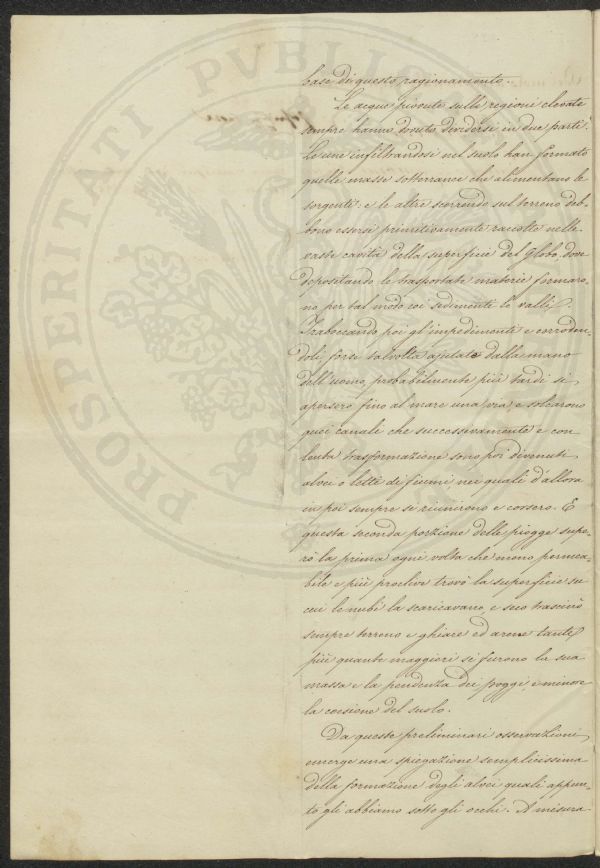 PROSPERITATI PVBLICAE
base di questo ragionamento.
Le acque piovute sulle regioni elevate
sempre hanno dovuto dividersi in due parti.
Le une infiltrandosi nel suolo han formato
quelle masse sotterranee che alimentano le
sorgenti: e le altre scorrendo sul terreno deb-
bono essersi primitivamente raccolte nelle
vaste cavità della superficie del Globo, dove
depositando le trasportate materie formaro-
no per tal modo coi sedimenti le valli.
Traboccando poi gl'impedimenti e corroden-
doli, forse talvolta ajutate dalla mano
dell'uomo, probabilmente più tardi si
apersero fino al mare una via, e solcarono
quei canali che successivamente e con
lenta trasformazione sono poi divenuti
alvei o letti di fiumi, nei quali d'allora
in poi sempre si riunirono e corsero. E
questa seconda porzione delle piogge supe-
rò la prima ogni volta che meno permea-
bile e più proclive trovò la superficie su
cui le nubi la scaricavano, e seco trascinò
sempre terreno e ghiaie ed arene tante
più quanto maggiori si furono la sua
massa e la pendenza dei poggi, e minore
la coesione del suolo.
Da queste preliminari osservazioni
emerge una spiegazione semplicissima
della formazione degli alvei quali appun-
to gli abbiamo sotto gli occhi. A misura